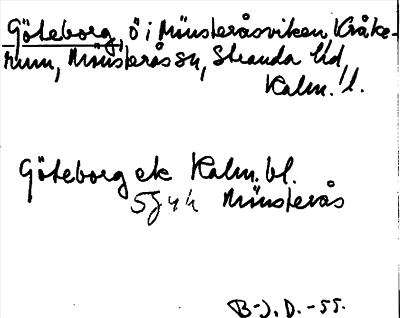 Göteborg, ö i Mönsteråsviken, Kråke-
rum, Mönsterås sn, Stranda hd,
Kalm. l.
Göteborg ek Kalm. bl.
5g 4h Mönsterås
B-J. D. -55.